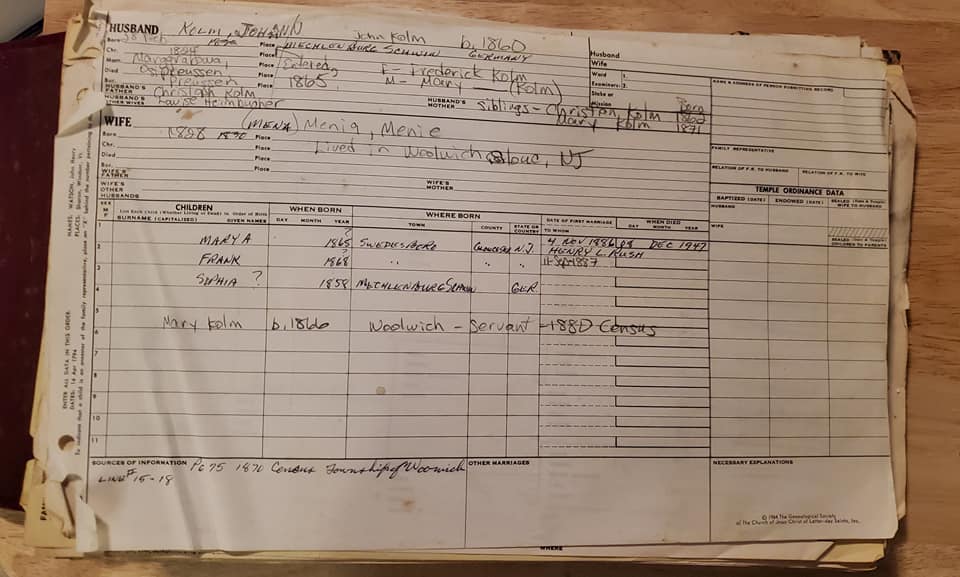 HUSBAND KOLM, JOHANN John Kolm b. 1860
Born Place MECHLENBURG SCHWIN GERMANY
Chr. 1824 Place Entered,
Marr. Margarabowa, Place 1865 F - Frederick Kolm
Died Ostpreussen Place M - Mary (Kolm)
Bur. Preussen Place
HUSBAND'S FATHER Christoph Kolm HUSBAND'S MOTHER Siblings - Christian Kolm 1862
HUSBAND'S OTHER WIVES Louise Mary Kolm 1871
Born
Husband
Wife
Ward 1.
Examiners: 2.
Stake or
Mission
NAME & ADDRESS OF PERSON SUBMITTING RECORD
WIFE (MENA) Menia, Menie
Born 1828 1830 Place
Chr. Place Lived in Woolwich Glouc, NJ
Died Place
Bur. Place
WIFE'S FATHER
WIFE'S OTHER HUSBANDS
WIFE'S MOTHER
FAMILY REPRESENTATIVE
RELATION OF F.R. TO HUSBAND RELATION OF F.R. TO WIFE
TEMPLE ORDINANCE DATA
BAPTIZED (DATE) ENDOWED (DATE) SEALED (Date & Temple) WIFE TO HUSBAND
HUSBAND
WIFE
SEALED (Date & Temple) CHILDREN TO PARENTS
SEX M F
CHILDREN
List Each Child (Whether Living or Dead) in Order of Birth
SURNAME (CAPITALIZED) GIVEN NAMES
WHEN BORN
DAY MONTH YEAR
WHERE BORN
TOWN COUNTY STATE OR COUNTRY
DATE OF FIRST MARRIAGE
TO WHOM
WHEN DIED
DAY MONTH YEAR
1 MARY A ? 1865 SWEDESBORO GLOUCESTER N.J. 4 NOV 1886 08 DEC 1947
HENRY L. RUSH
2 FRANK ? 1868 " " " " 11 Sept 1887
3 SOPHIA ? 1858 MECHLENBURG SCHWIN GER
4
5 Mary Kolm b. 1866 Woolwich - Servant - 1880 Census
6
7
8
9
10
11
SOURCES OF INFORMATION Pg 75 1870 Census Township of Woolwich
LINE # 15-18
OTHER MARRIAGES
NECESSARY EXPLANATIONS
© 1964 The Genealogical Society
of The Church of Jesus Christ of Latter-day Saints, Inc.
ENTER ALL DATA IN THIS ORDER:
NAMES: WATSON, John Henry
PLACES: Sharon, Windsor, Vt.
DATES: 14 Apr 1794
WHERE